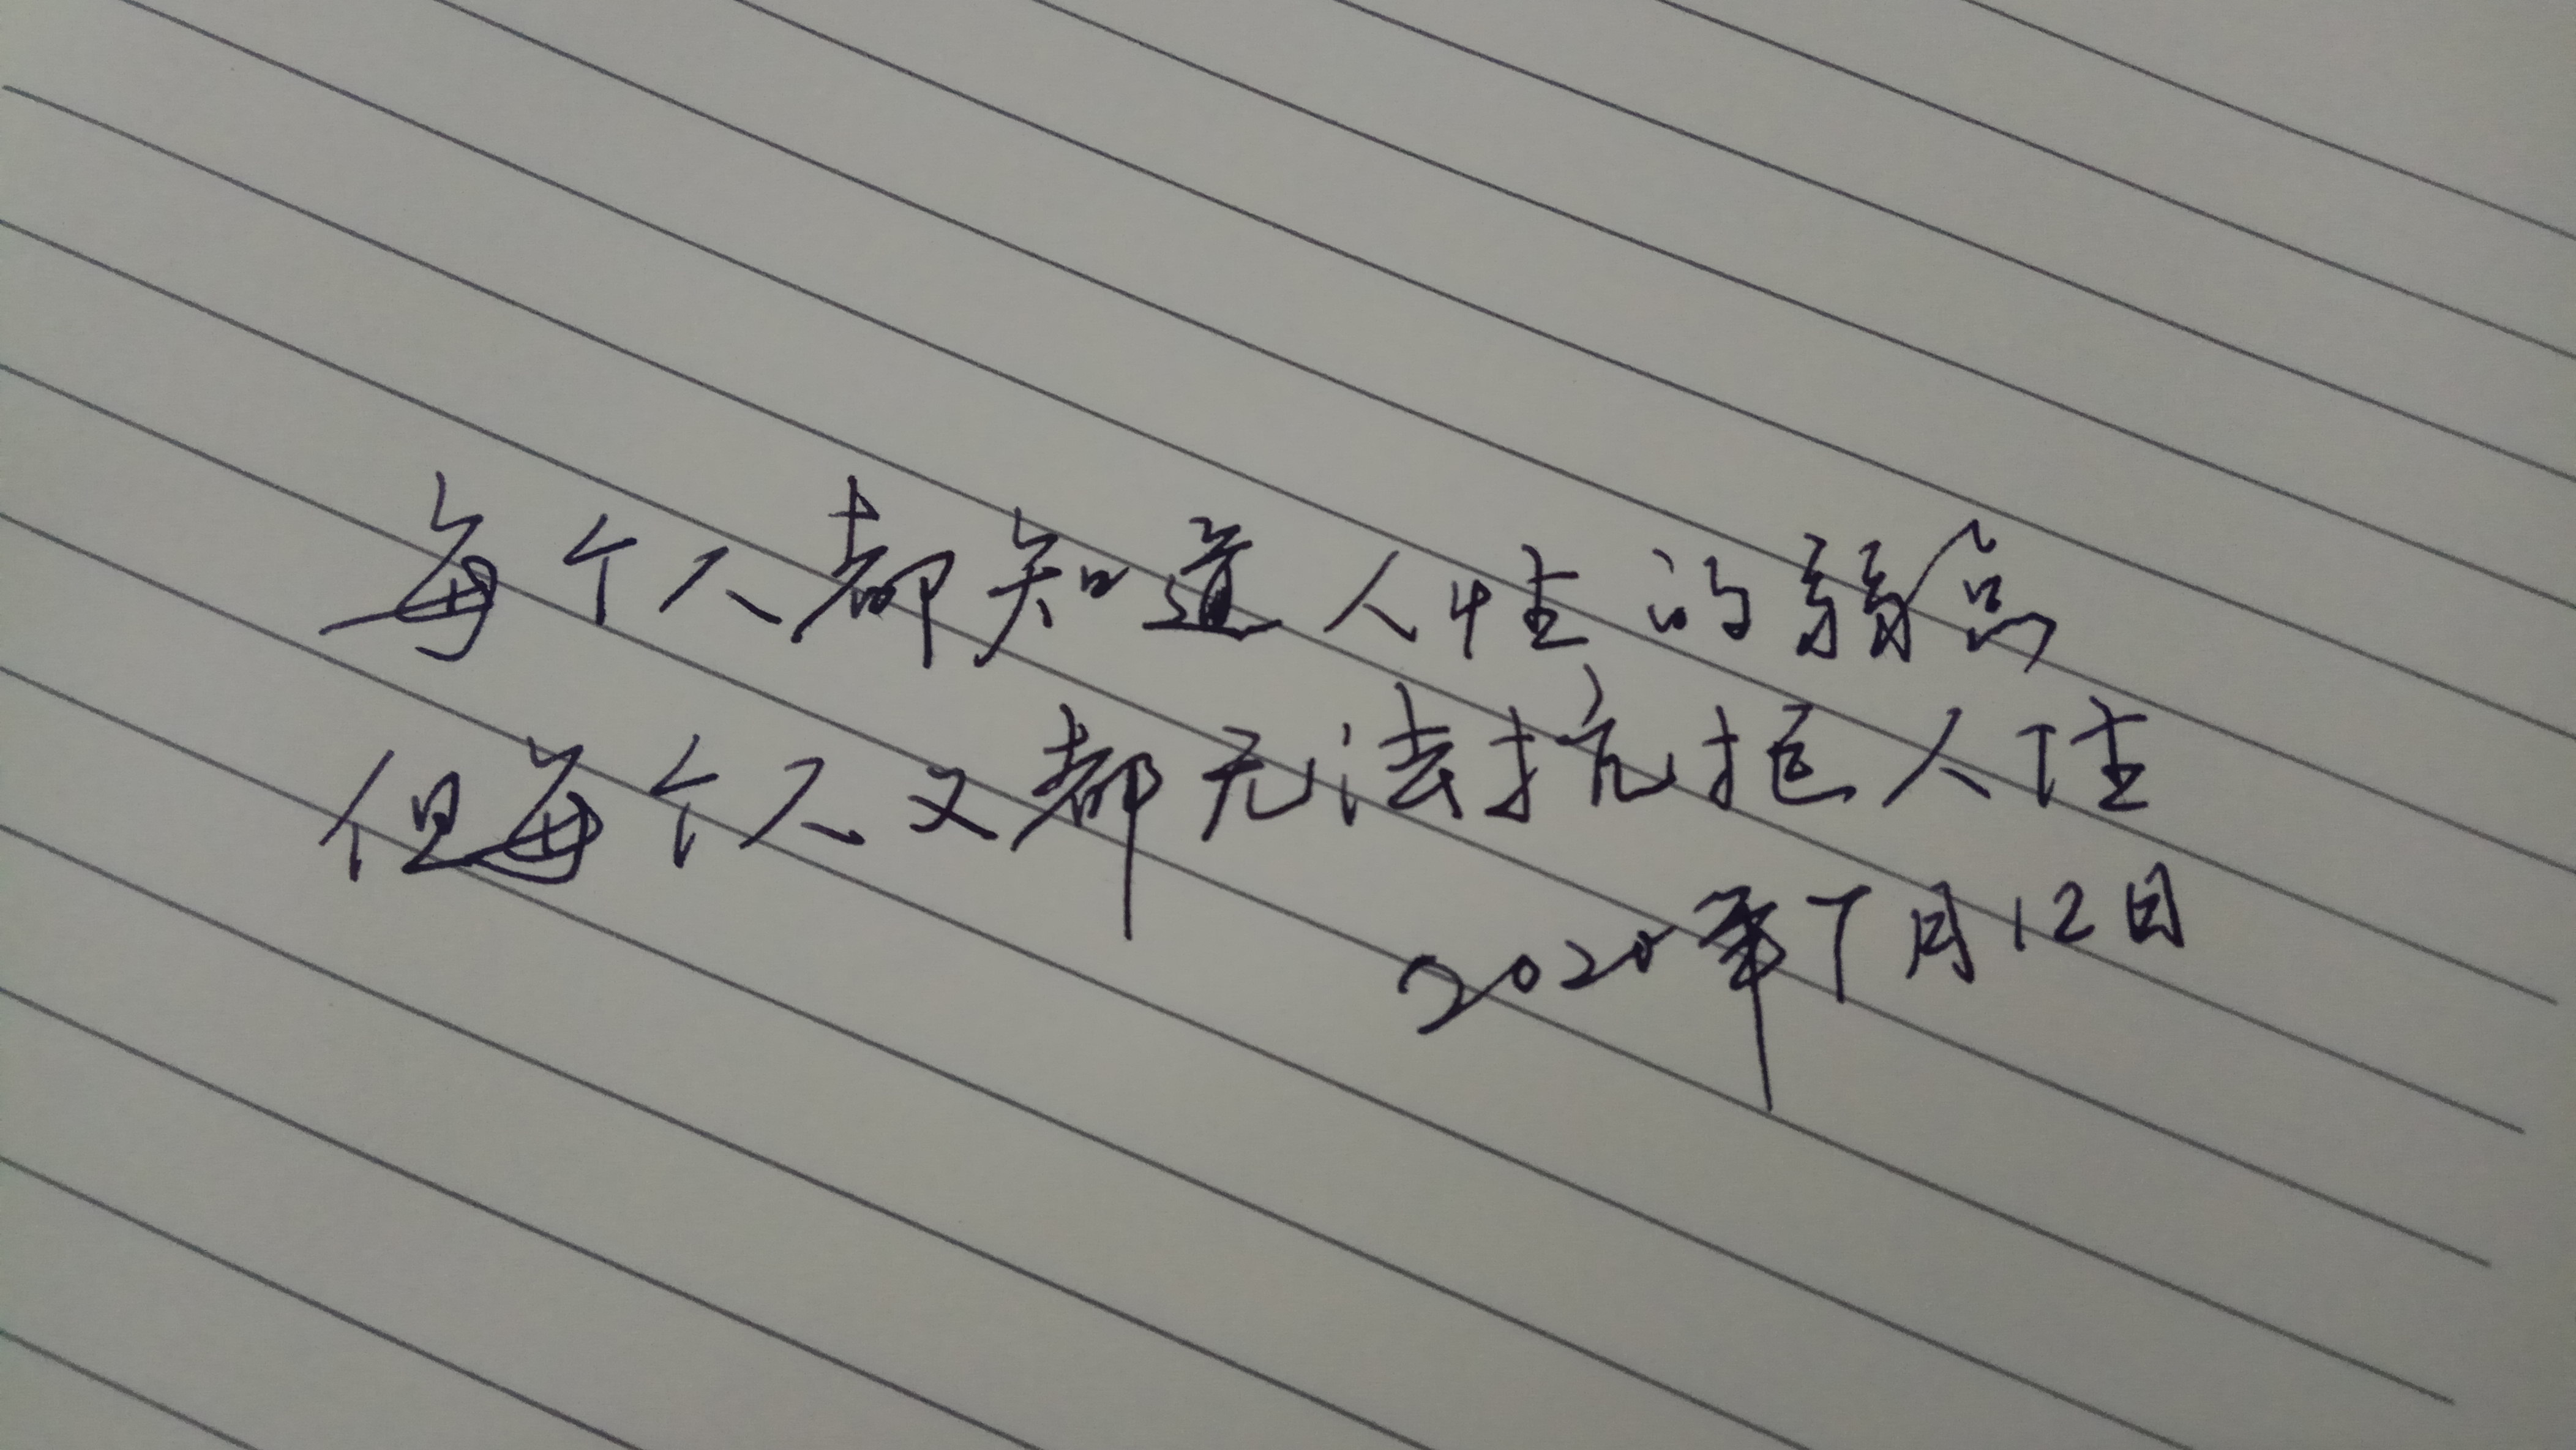 每个人都知道人性的弱点
但每个人又都无法抗拒人性
2020年7月12日